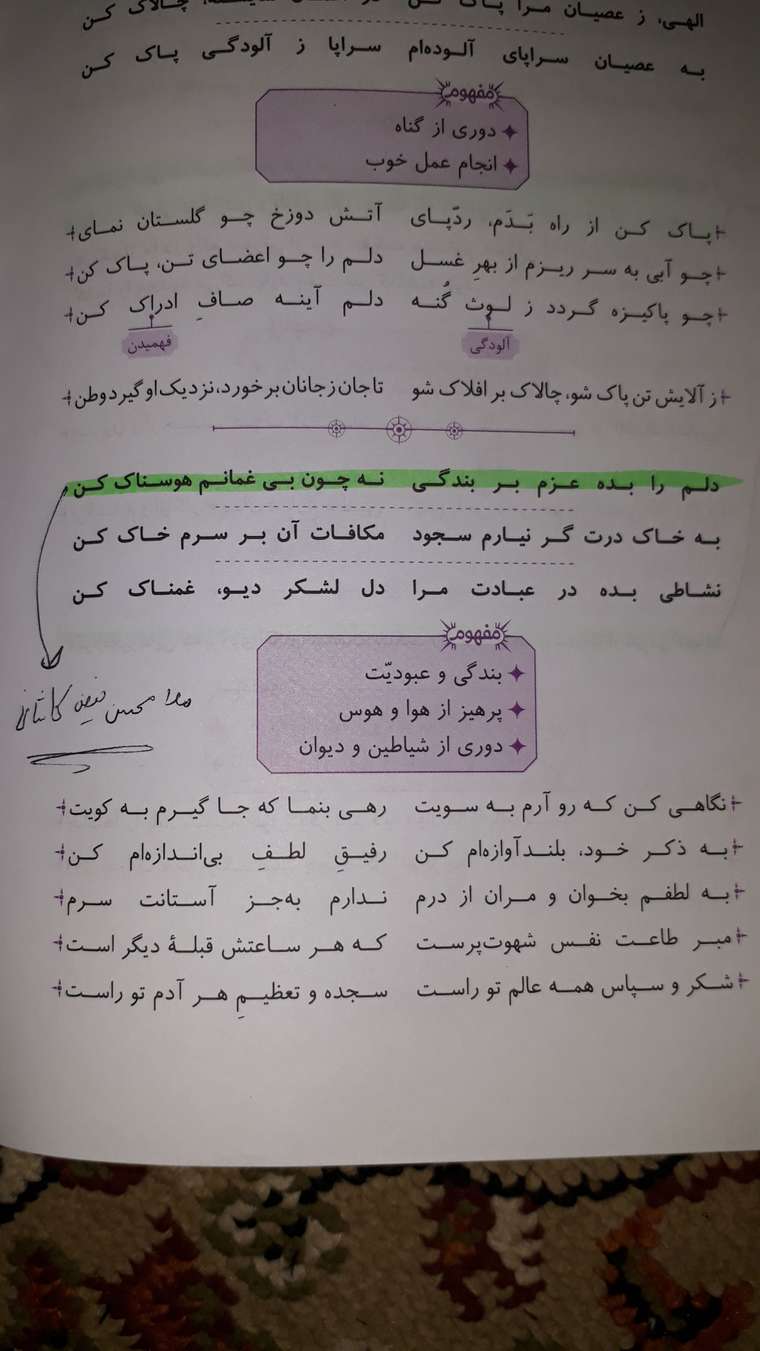 الهی، ز عصیان مرا پاک کن در اعمال شایسته، چالاک کن
به عصیان سراپای آلوده‌ام سراپا ز آلودگی پاک کن
مفهوم
دوری از گناه
انجام عمل خوب
پاک کن از راه بَدَم، ردّپای آتش دوزخ چو گلستان نمای
چو آبی به سر ریزم از بهرِ غسل دلم را چو اعضای تن، پاک کن
چو پاکیزه گردد ز لوث گُنه دلم آینه صافِ ادراک کن
آلودگی فهمیدن
ز آلایش تن پاک شو، چالاک بر افلاک شو تا جان ز جانان برخورد، نزدیک او گیرد وطن
دلم را بده عزم بر بندگی نه چون بی غمانم هوسناک کن
به خاک درت گر نیارم سجود مکافات آن بر سرم خاک کن
نشاطی بده در عبادت مرا دل لشکر دیو، غمناک کن
مفهوم
بندگی و عبودیّت
پرهیز از هوا و هوس
دوری از شیاطین و دیوان
ملا محسن فیض کاشانی
نگاهی کن که رو آرم به سویت رهی بنما که جا گیرم به کویت
به ذکر خود، بلندآوازه‌ام کن رفیقِ لطفِ بی‌اندازه‌ام کن
به لطفم بخوان و مران از درم ندارم به‌جز آستانت سرم
مبر طاعت نفس شهوت‌پرست که هر ساعتش قبلهٔ دیگر است
شکر و سپاس همه عالم تو راست سجده و تعظیمِ هر آدم تو راست